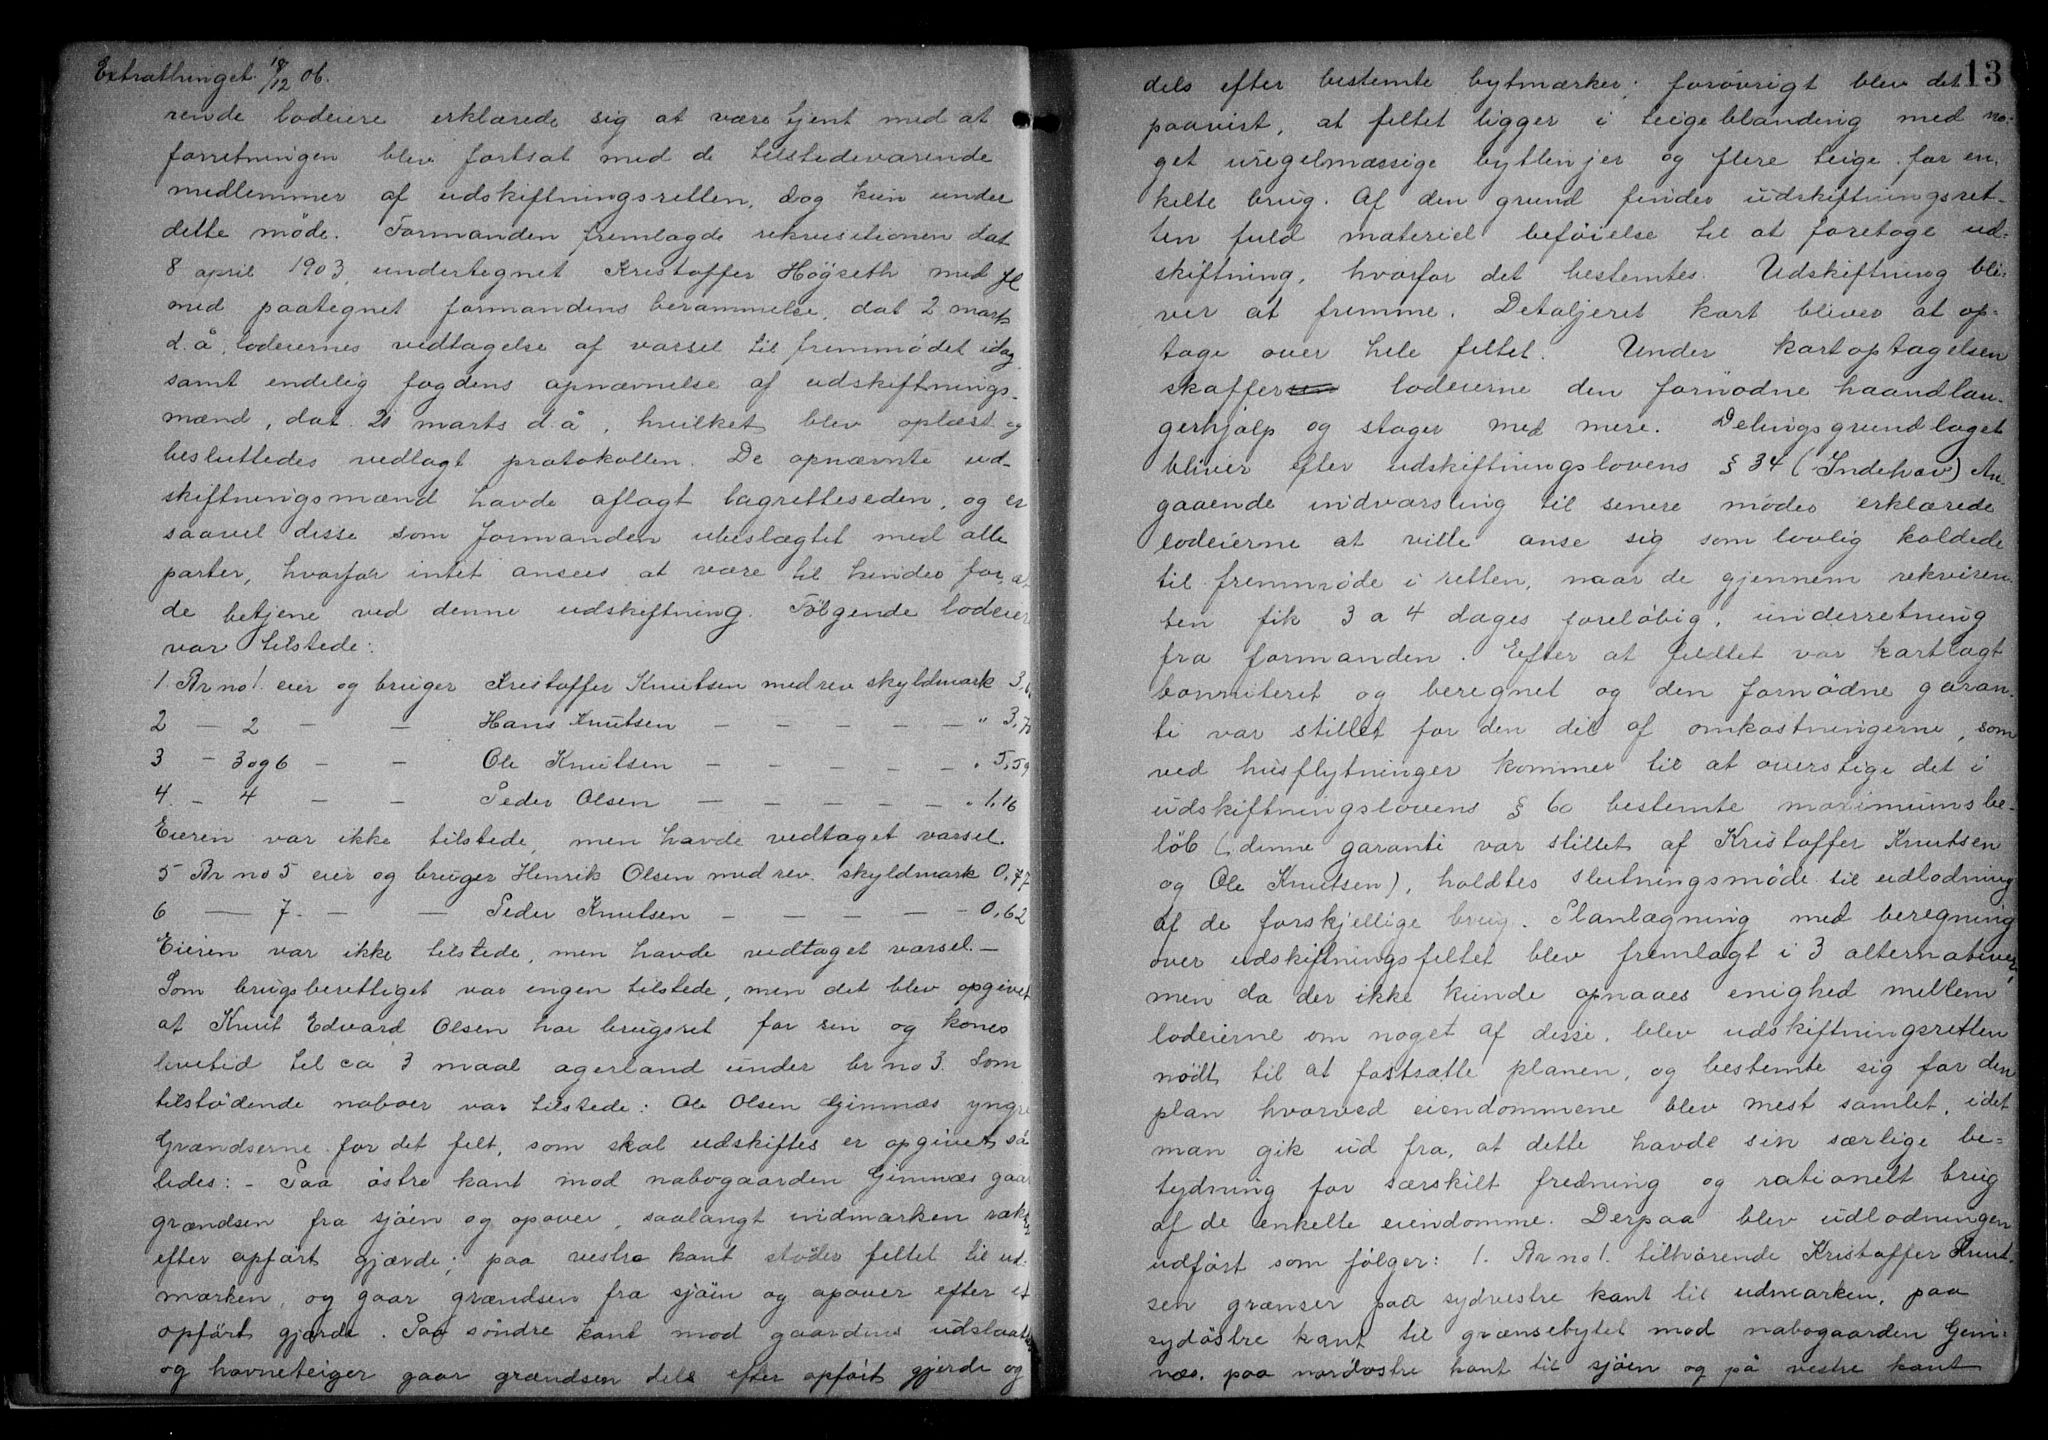 Extrathinget 18/12 06.
rende lodeiere erklærede sig at være tjent med at
forretningen blev fortsat med de tilstedeværende
medlemmer af udskiftningsretten, dog kun under
dette møde. Formanden fremlagde rekvisitionen dat
8 april 1903, undertegnet Kristoffer Høgseth med fl
med paategnet formandens berammelse, dat 2 marts
d. å, lodeiernes vedtagelse af varsel til fremmødet idag
samt endelig fogdens opnævnelse af udskiftnings-
mænd, dat. 21 marts d. å, hvilket blev oplæst og
besluttedes vedlagt protokollen. De opnævnte ud-
skiftningsmænd havde aflagt lagretteseden, og er
saavel disse som formanden ubeslægtet med alle
parter, hvorfor intet ansees at være til hinder for, at
de betjene ved denne udskiftning. Følgende lodeier
var tilstede:
1. Br no 1. eier og bruger Kristoffer Knutsen med rev skyldmark 3,6
2 — 2 — — Hans Knutsen — — — — — " 3,7
3 — 3 og 6 — — Ole Knutsen — — — — — " 5,59
4. — 4 — — Peder Olsen — — — — — " 1,16
Eieren var ikke tilstede, men havde vedtaget varsel.
5 Br no 5 eier og bruger Henrik Olsen med rev. skyldmark 0,77
6 — 7. — — Peder Knutsen — — — — — 0,62
Eieren var ikke tilstede, men havde vedtaget varsel. —
Som brugsberettiget var ingen tilstede, men det blev opgivet
at Knut Edvard Olsen har brugsret for sin og kones
levetid til ca 3 maal agerland under br no 3. Som
tilstødende naboer var tilstede: Ole Olsen Gimnæs yngre
Grændserne for det felt, som skal udskiftes er opgivet så
ledes: - Paa østre kant mod nabogaarden Gimnæs gaar
grændsen fra sjøen og opover, saalangt indmarken rækker
efter opført gjærde; paa vestre kant støder feltet til ud-
marken, og gaar grændsen fra sjøen og opover efter et
opført gjærde. Paa søndre kant mod gaardens udslaatter
og havneteiger gaar grændsen dels efter opført gjerde og
13
dels efter bestemte bytmærker; forøvrigt blev det
paavist, at feltet ligger i teigeblanding med no-
get uregelmæssige bytlinjer og flere teige for en-
kelte brug. Af den grund finder udskiftningsret-
ten fuld materiel beføielse til at foretage ud-
skiftning, hvorfor det bestemtes. Udskiftning bli-
ver at fremme. Detaljeret kart bliver at op-
tage over hele feltet. Under kartoptagelsen
skaffer lodeierne den fornødne haandlan-
gerhjælp og stager med mere. Delingsgrundlaget
bliver efter udskiftningslovens § 34 (Indehav) An-
gaaende indvarsling til senere møder erklærede
lodeierne at ville anse sig som lovlig kaldede
til fremmøde i retten, naar de gjennem rekviren
ten fik 3 a 4 dages foreløbig, underretning
fra formanden. Efter at feldtet var kartlagt
bonniteret og beregnet og den fornødne garan-
ti var stillet for den del af omkostningerne, som
ved husflytninger kommer til at overstige det i
udskiftningslovens § 60 bestemte maximumsbe-
løb (denne garanti var stillet af Kristoffer Knutsen
og Ole Knutsen), holdtes slutningsmøde til udlodning
af de forskjellige brug. Planlægning med beregning
over udskiftningsfeltet blev fremlagt i 3 alternativer,
men da der ikke kunde opnaaes enighed mellem
lodeierne om noget af disse, blev udskiftningsretten
nødt til at fastsætte planen, og bestemte sig for den
plan hvorved eiendommene blev mest samlet, idet
man gik ud fra, at dette havde sin særlige be-
tydning for særskilt fredning og rationelt brug
af de enkelte eiendomme. Derpaa blev udlodningen
udført som følger: 1. Br no 1. tilhørende Kristoffer Knut-
sen grænser paa sydvestre kant til udmarken, paa
sydøstre kant til grænsebytet mod nabogaarden Gim-
næs, paa nordøstre kant til sjøen og på vestre kant